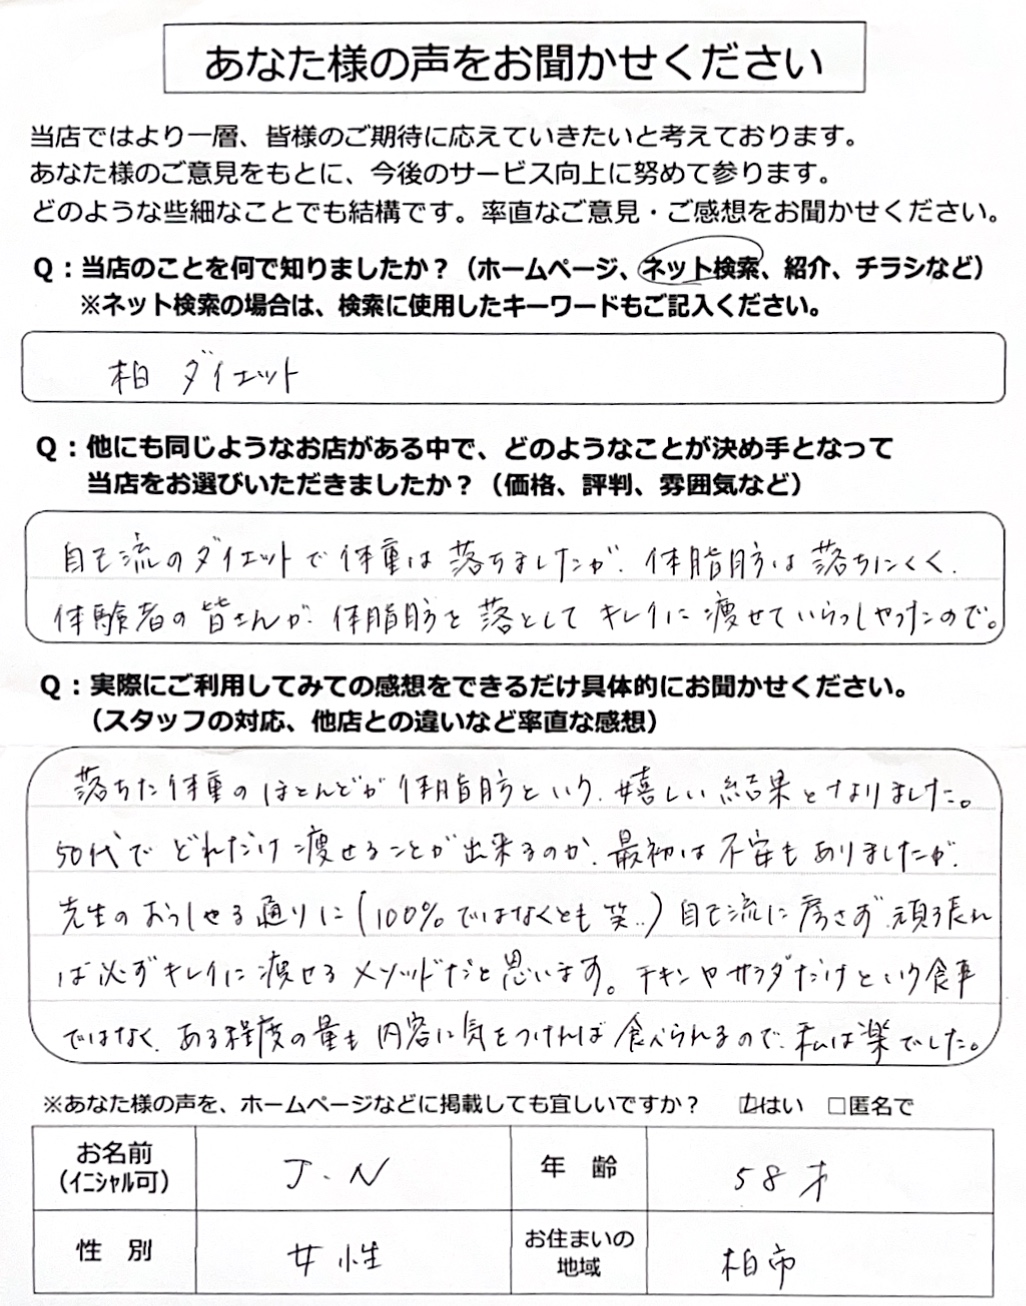 あなた様の声をお聞かせください
当店ではより一層、皆様のご期待に応えていきたいと考えております。
あなた様のご意見をもとに、今後のサービス向上に努めて参ります。
どのような些細なことでも結構です。率直なご意見・ご感想をお聞かせください。
Q：当店のことを何で知りましたか？（ホームページ、ネット検索、紹介、チラシなど）
※ネット検索の場合は、検索に使用したキーワードもご記入ください。
柏 ダイエット
Q：他にも同じようなお店がある中で、どのようなことが決め手となって
当店をお選びいただきましたか？（価格、評判、雰囲気など）
自己流のダイエットで体重は落ちましたが、体脂肪は落ちにくく、
体験者の皆さんが、体脂肪を落としてキレイに痩せていらっしゃったので。
Q：実際にご利用してみての感想をできるだけ具体的にお聞かせください。
（スタッフの対応、他店との違いなど率直な感想）
落ちた体重のほとんどが体脂肪という、嬉しい結果となりました。
50代でどれだけ痩せることが出来るのか、最初は不安もありましたが、
先生のおっしゃる通りに（100％ではなくとも笑‥）自己流に崩さず、頑張れ
ば必ずキレイに痩せるメソッドだと思います。チキンやサラダだけという食事
ではなく、ある程度の量も内容に気をつければ食べられるので、私は楽でした。
※あなた様の声を、ホームページなどに掲載しても宜しいですか？ ☑はい □匿名で
お名前 J.N 年齢 58才
(イニシャル可)
性別 女性 お住まいの 柏市
地域